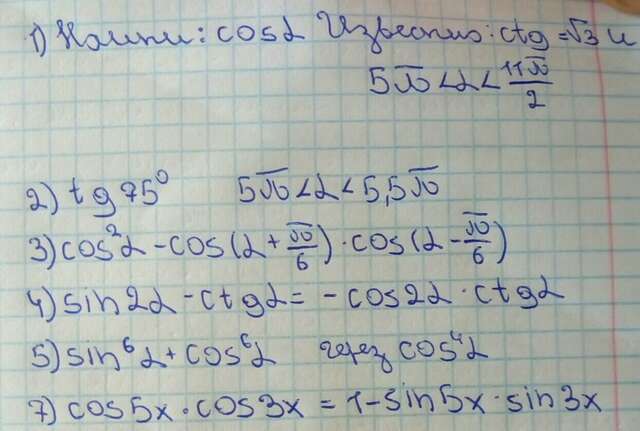 1) Найти: cosα Известно: ctg = √3 и
5π < α < 11π/2
2) tg 75° 5π < α < 5,5π
3) cos²α - cos(α + π/6) · cos(α - π/6)
4) sin2α - ctgα = - cos2α · ctgα
5) sin⁶α + cos⁶α через cos⁴α
7) cos5x · cos3x = 1 - sin5x · sin3x